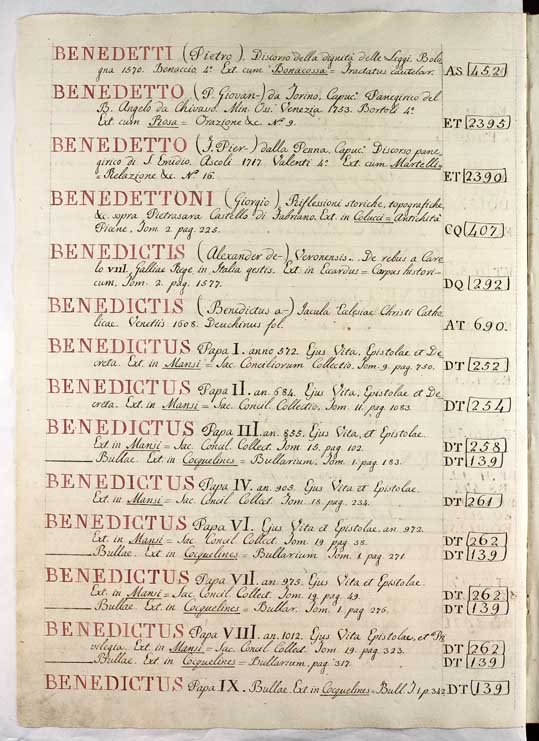 BENEDETTI (Pietro). Discorso della dignità delle Leggi. Bolo=
gna 1570. Benaccio 4.º Ext. cum Bonacossa = Tractatus cautelar. AS 452
BENEDETTO (P. Giovan-) da Torino. Capuc.º Panegirico del
B. Angelo da Chivasso. Min. Oss. Venezia 1753. Bortoli 4.º
Ext. cum Rosa = Orazione &c. N.º 9. ET 2395
BENEDETTO (F. Pier-) dalla Penna. Capuc.º Discorso pane=
girico di S. Emidio. Ascoli 1717. Valenti 4.º Ext. cum Martelli=
= Relazione &c. N.º 16. ET 2390
BENEDETTONI (Giorgio). Riflessioni storiche, topografiche,
&c. sopra Pietrasara Castello di Fabriano. Ext. in Colucci = Antichità
Picene, Tom. 2. pag. 225. CQ 407
BENEDICTIS (Alexander de-) Veronensis. De rebus a Caro=
lo VIII. Galliae Rege in Italia gestis. Ext. in Eccardus = Corpus histori=
cum, Tom. 2. pag. 1577. DQ 292
BENEDICTIS (Benedictus a-) Jacula Eclesiae Christi Catho=
licae. Venetiis 1608. Deuchinus fol. AT 690.
BENEDICTUS Papa I. anno 572. Ejus Vita, Epistolae et De=
creta. Ext. in Mansi = Sac. Conciliorum Collectio, Tom. 9. pag. 750. DT 252
BENEDICTUS Papa II. an. 684. Ejus Vita, Epistolae et De=
creta. Ext. in Mansi = Sac. Concil. Collectio, Tom. 11. pag. 1083. DT 254
BENEDICTUS Papa III. an. 855. Ejus Vita, et Epistolae.
Ext. in Mansi = Sac. Concil. Collect. Tom. 15. pag. 102. DT 258
Bullae. Ext. in Cocquelines = Bullarium, Tom. 1. pag. 183. DT 139
BENEDICTUS Papa IV. an. 905. Ejus Vita et Epistolae.
Ext. in Mansi = Sac. Concil. Collect. Tom. 18. pag. 234. DT 261
BENEDICTUS Papa VI. Ejus Vita et Epistolae. an. 972.
Ext. in Mansi = Sac. Concil. Collect. Tom. 19. pag. 38. DT 262
Bullae. Ext. in Cocquelines = Bullarium Tom. 1. pag. 271. DT 139
BENEDICTUS Papa VII. an. 975. Ejus Vita et Epistolae.
Ext. in Mansi = Sac. Concil. Collect. Tom. 19. pag. 49. DT 262
Bullae. Ext. in Cocquelines = Bullar. Tom. 1. pag. 276. DT 139
BENEDICTUS Papa VIII. an. 1012. Ejus Vita Epistolae, et Pri=
vilegia. Ext. in Mansi = Sac. Concil. Collect. Tom. 19. pag. 323. DT 262
Bullae. Ext. in Cocquelines = Bullarium, pag. 317. DT 139
BENEDICTUS Papa IX. Bullae. Ext. in Cocquelines = Bull. T. 1. p. 342. DT 139